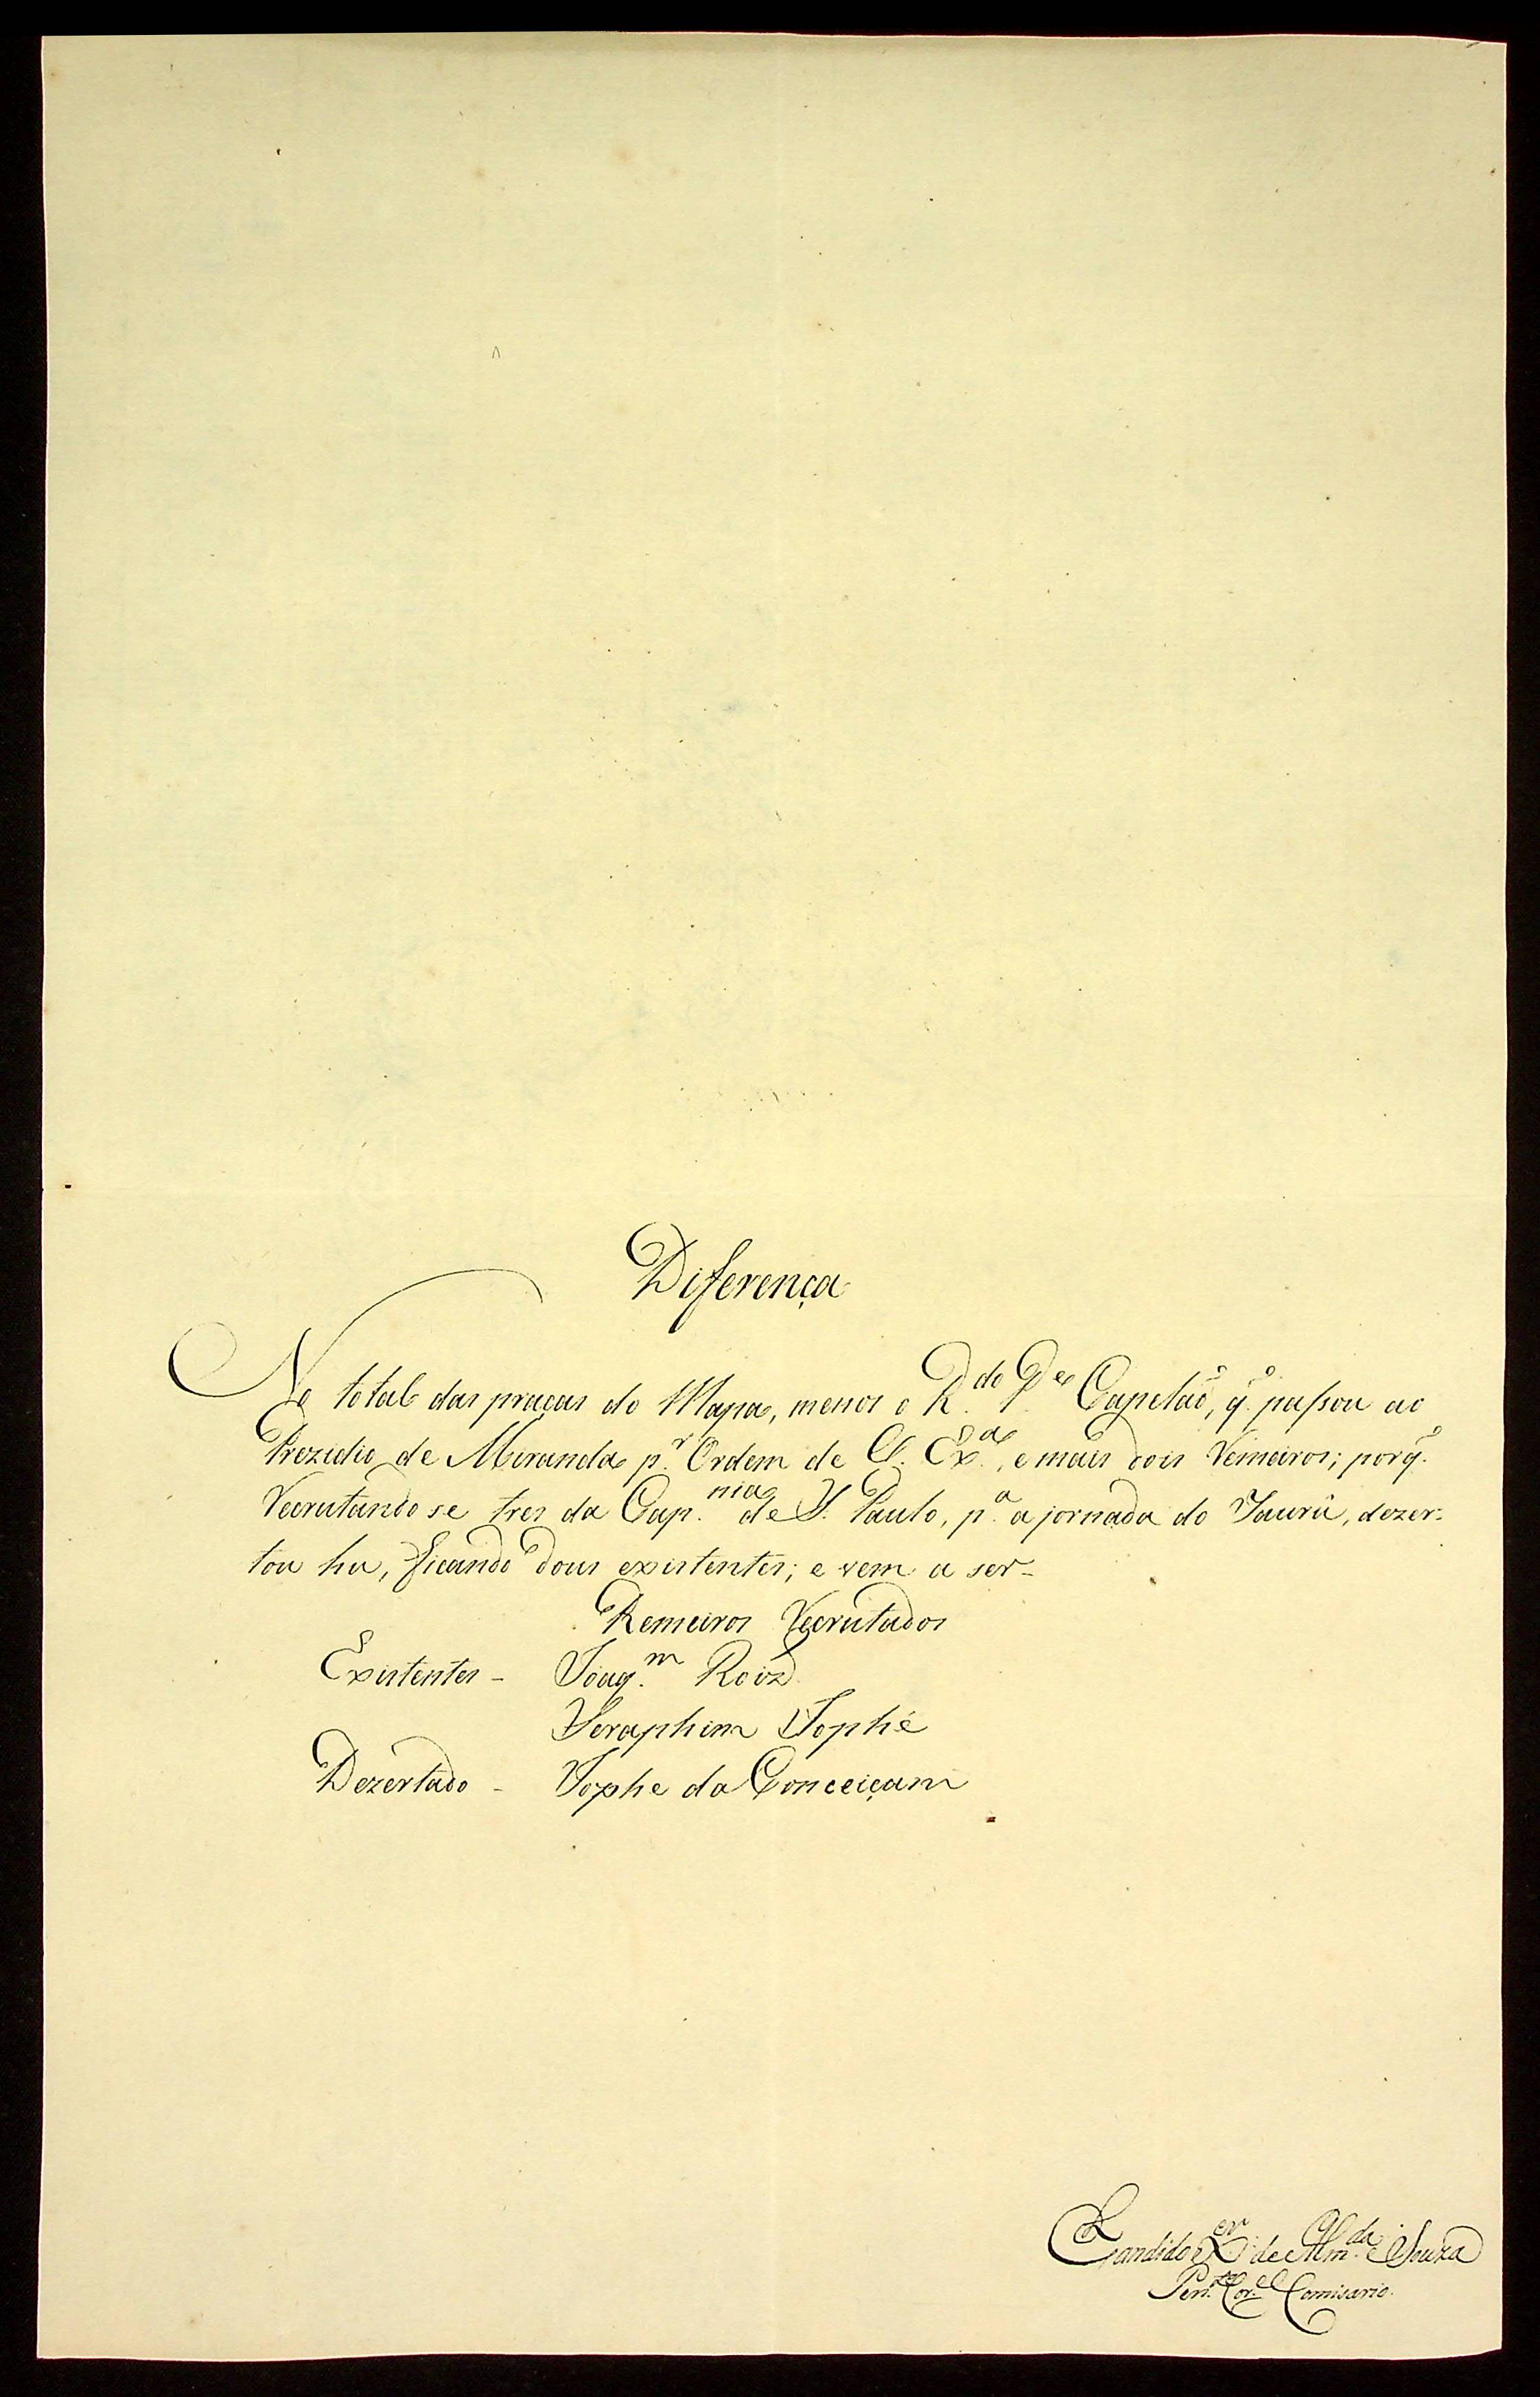 Diferença
No total das praças do Mapa, menos o R.do P.e Capelaõ, q̃. passou ao
Prezidio de Miranda p.r Ordem de V. Ex.a, e mais dois Remeiros; porq̃.
Recrutando se tres da Cap.nia de S. Paulo, p.a a jornada do Jaurû, dezer-
tou hu, ficando dous existentes; e vem a ser-
Remeiros Recrutados
Existentes - Joaq.m Roiz
Seraphim Jophé
Dezertado - Jophe da Conceiçam
Candido X.er de Alm.da e Souza
Ten.te Cor.el Comisario.